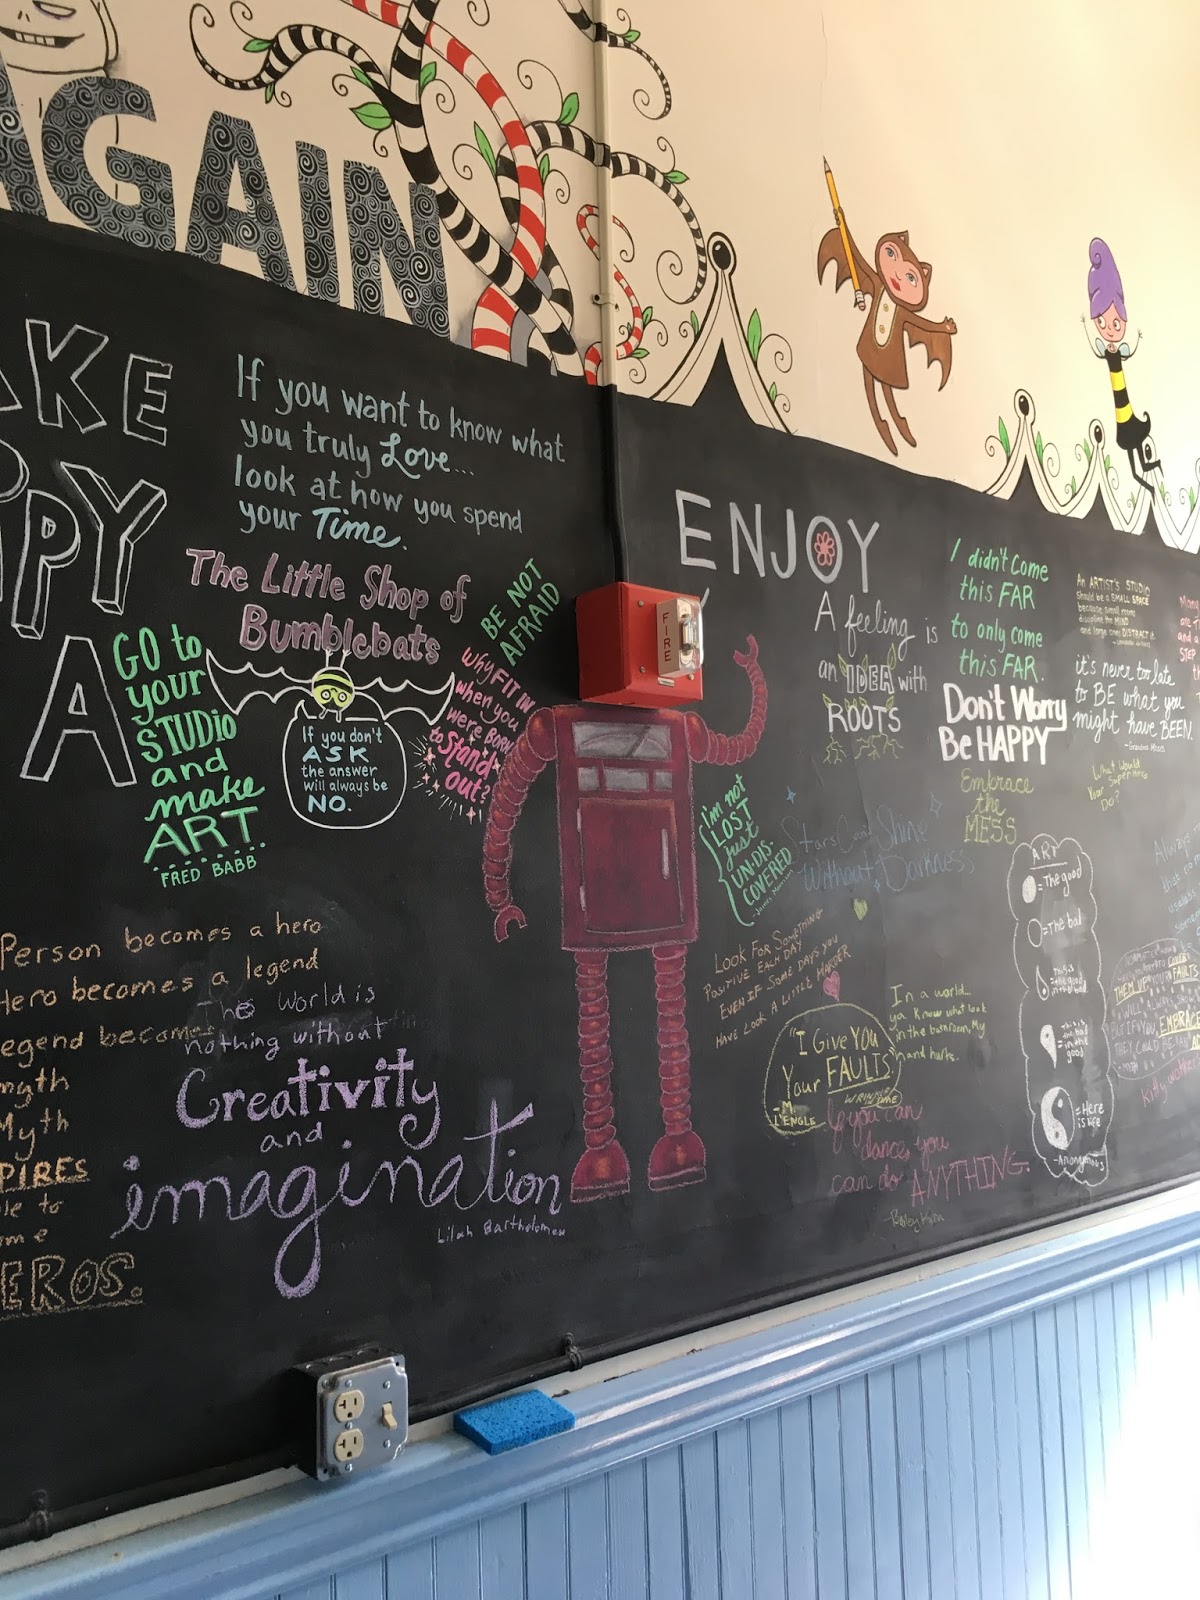 AGAIN
AKE
PPY
A
If you want to know what
you truly Love...
look at how you spend
your Time.
The Little Shop of
Bumblebats
GO to
your
STUDiO
and
make
ART
FRED BABB
If you don't
ASK
the answer
will always be
NO.
BE NOT
AFRAID
Why FIT IN
when you
were BORN
to Stand
out?
Person becomes a hero
Hero becomes a legend
egend becomes
myth
Myth
PIRES
le to
me
EROS.
The World is
nothing without
Creativity
and
imagination
Lilah Bartholomew
FIRE
ENJOY
A feeling is
an IDEA with
ROOTS
I didn't come
this FAR
to only come
this FAR.
Don't Worry
Be HAPPY
Embrace
the
MESS
An ARTIST'S STUDIO
should be a SMALL SPACE
because small rooms
discipline the MIND
and large ones DISTRACT it.
it's never too late
to BE what you
might have BEEN.
What Would
Your Superhero
Do?
I'm not
LOST
just
UN-DIS-
COVERED
-James Morrison
Stars Can't Shine
Without Darkness
Look For Something
Positive Each Day
Even if Some Days you
Have Look a Little Harder
"I Give YOU
Your FAULTS"
-M.
L'ENGLE
WRINKLE
In a world...
ya know what look
in the bathroom, My
hand hurts.
If you can
dance, you
can do ANYTHING.
ART
= The good
= The bad
This is
the good
in the bad
This is
the bad
in the
good
= Here
is life
-Anonymous
Always
THEM UP
YOUR FAULTS
BUT IF YOU EMBRACE
THEY COULD BE